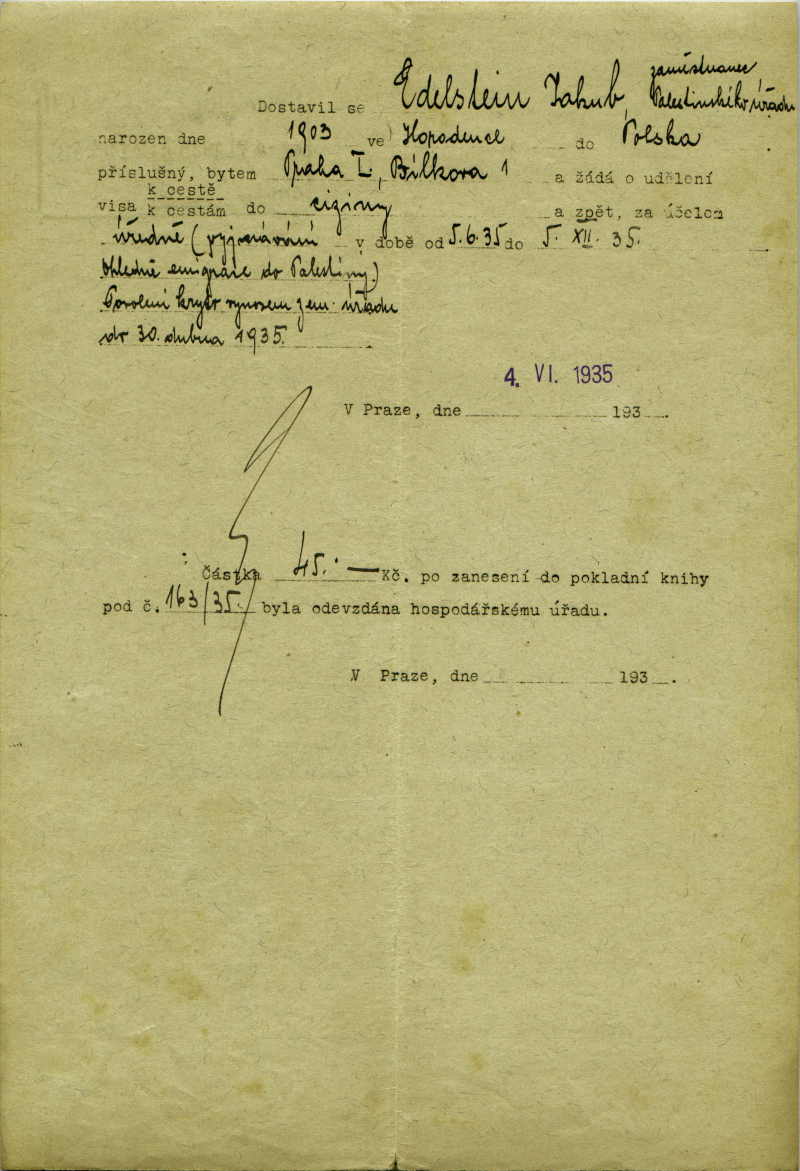 zaměstnanec
Dostavil se Edelstein Jakub, Palestinského úřadu
narozen dne 1903 ve Horodence do Polska
příslušný, bytem Praha I., Bílkova 1 a žádá o udělení
k cestě
visa k cestám do ciziny a zpět, za účelem
úředně (vyjednávání v době od 5.6.35 do 5. XII. 35.
ohledně emigrace do Palestiny)
Povolení kryto výnosem zem. úřadu
30. dubna 1935.
4. VI. 1935
V Praze, dne 193 .
Částka 45.— Kč. po zanesení do pokladní knihy
pod č. 163/35. byla odevzdána hospodářskému úřadu.
V Praze, dne 193 .